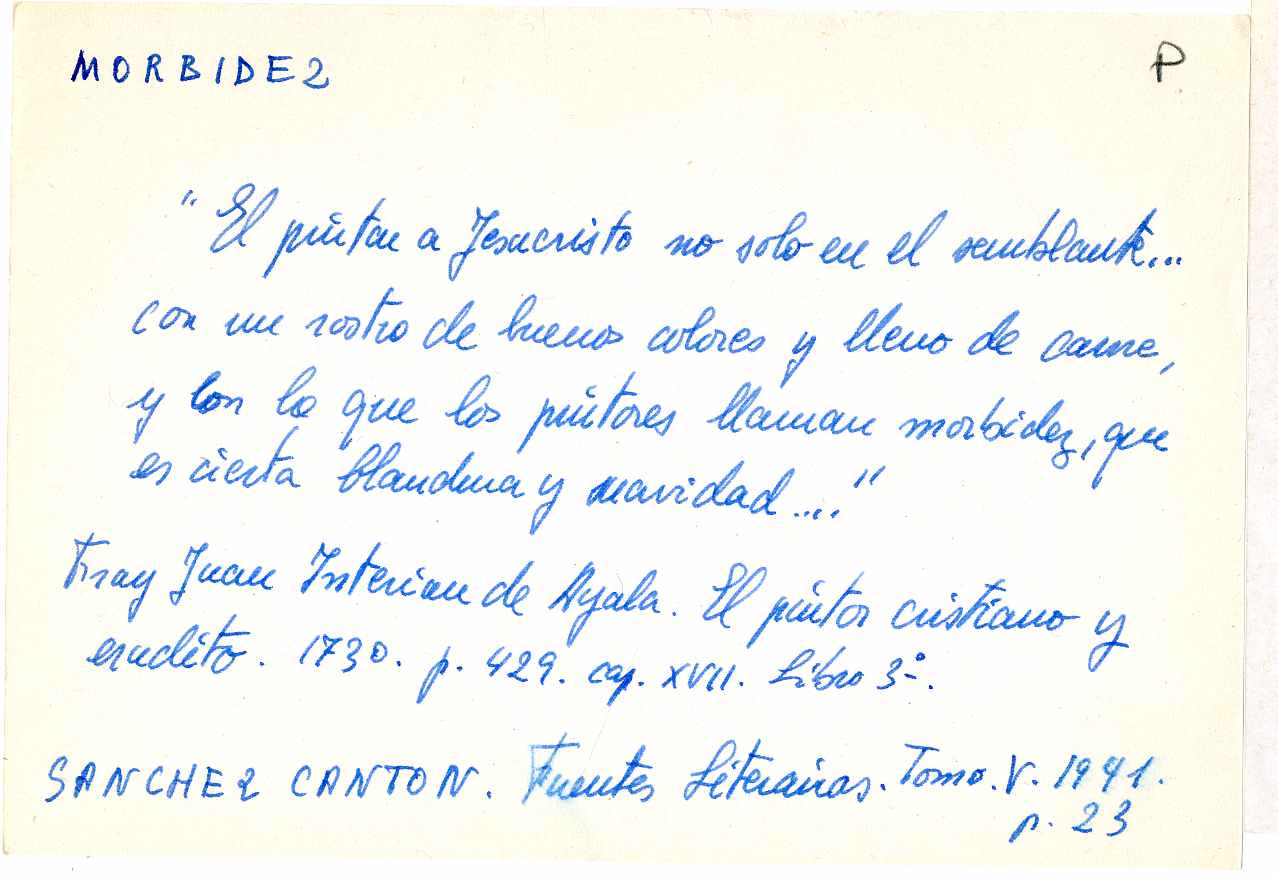 MORBIDEZ P
"El pintar a Jesucristo no solo en el semblante...
con un rostro de buenos colores y lleno de carne,
y con lo que los pintores llaman morbidez, que
es cierta blandura y suavidad...."
Fray Juan Interian de Ayala. El pintor cristiano y
erudito. 1730. p. 429. cap. XVII. Libro 3º.
SANCHEZ CANTON. Fuentes Literarias. Tomo. V. 1941.
p. 23